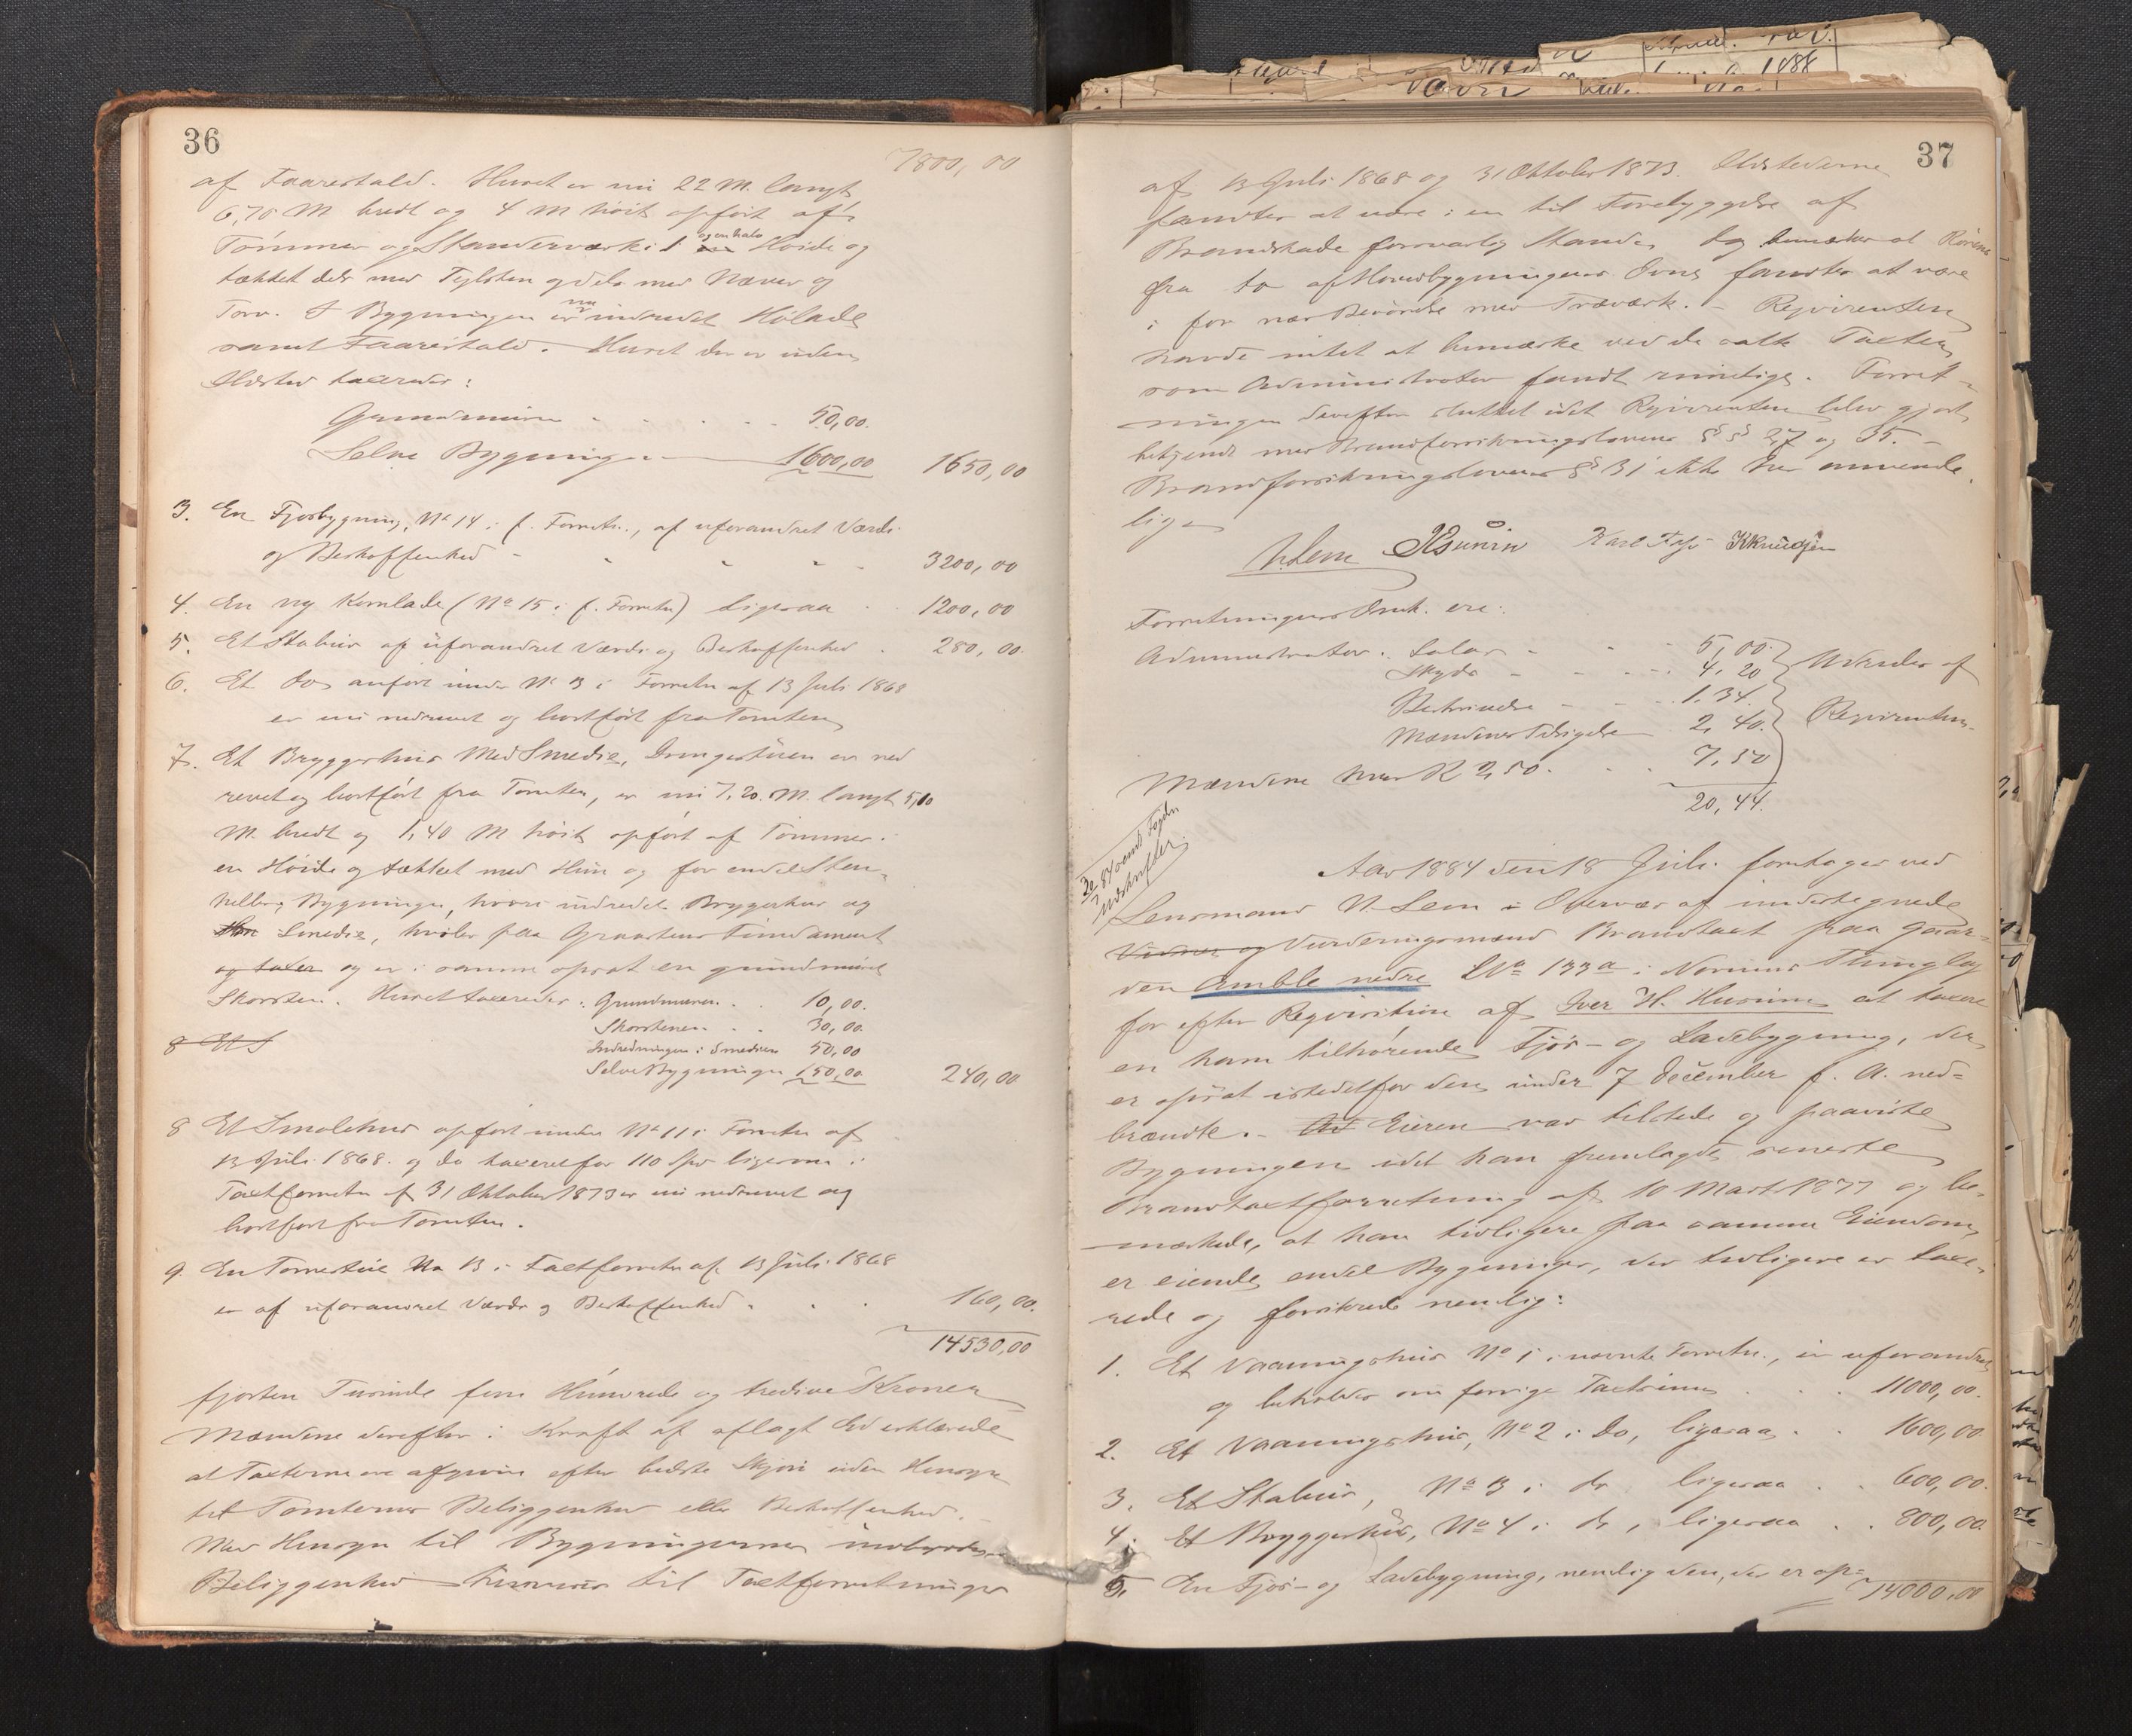 36
7800,00
af Faarestald. Huset er nu 22 M. langt
6,70 M bredt og 4 M höit opfört af
Tömmer og Standerværk i 1 og en halv Höide og
tækket dels med Teglsten og dels med Næver og
Torv. I Bygningen er nu indredet Hölade
samt Faarestald. Huset der er uden
Ildsted taxeredes:
Grundmuren 50,00.
Selve Bygningen 1600,00 1650,00
3. En Fjösbygning, No 14 i f. Forretn., af uforandret Værdi
og Beskaffenhed 3200,00
4. En ny Kornlade (No 15 i f. Forretn) ligesaa 1200,00
5. Et Stabur af uforandret Værdi og Beskaffenhed 280,00.
6. Et Do anfört under No 3 i Forretn af 13 Juli 1868
er nu nedrevet og bortfört fra Tomten
7. Et Bryggerhus med Smedie, Drengestuen er ned
revet og bortfört fra Tomten, er nu 7,20. M. langt 5,10
M. bredt og 1,40 M höit opfört af Tömmer i
en Höide og tækket med Hun og for endel Sten-
heller, Bygningen, hvori indredet Bryggerhus og
Smedie, hviler paa Graastens Fundament
og taxer og er i samme opsat en grundmuret
Skorsten. Huset taxeredes: Grundmuren 10,00.
Skorstenen 30,00.
8 Et S
Indredningen i Smedien 50,00
Selve Bygningen 150,00 240,00
8 Et Smalehus opfört under No 11 i Forretn af
13 Juli 1868. og da taxeret for 110 Spd ligesom i
Taxtforretn af 31 Oktober 1873 er nu nedrevet og
bortfört fra Tomten.
9. En Torrestue No 13 i Taxtforretn af 13 Juli 1868
er af uforandret Værdi og Beskaffenhed 160,00.
14530,00
fjorten Tusinde fem Hundrede og tredive Kroner
Mændene derefter i Kraft af aflagt Ed erklærede
at Taxterne ere afgivne efter bedste Skjön uden Hensyn
til Tomternes Beliggenhed eller Beskaffenhed.
Med Hensyn til Bygningernes indbyrdes
Beliggenhed henvises til Taxtforretninger
37
af 13 Juli 1868 og 31 Oktober 1873. Ildstederne
fandtes at være i en til Forebyggelse af
Brandskade forsvarlig Stand, dog bemærkes at Rörene
fra to af Hovedbygningens Ovne fandtes at være
i for nær Berörelse med Træværk. - Rqvirenten
havde intet at bemærke ved de satte Taxter
som Administrator fandt rimelige. Forret-
ningen derefter sluttet idet Rqvirenten blev gjort
bekjendt med Brandforsikringslovens §§ 27 og 35. -
Brandforsikringslovens § 31 ikke her anvende-
lig.
N. Lem Karl KKnudsen
Forretningens Omk. ere:
Administrator: Salær 5,00
Skyds 4,20
Beskrivelse 1,34.
Mændenes Tilsigelse 2,40.
Mændene hver K 2,50. 7,50
20,44.
Udredes af
Rqvirenten.
Aar 1884 den 18 Juli foretoges ved
Lensmand N. Lem i Overvær af undertegnede
Vidner og Vurderingsmænd Brandtaxt paa Gaar-
den Amble nedre LNo 133a i Norums Thinglag
for efter Reqvisition af Iver H. Husum at taxere
en ham tilhörende Fjös- og Ladebygning, der
er opsat istedetfor den under 7 December f. A. ned-
brændte. - Eieren var tilstede og paaviste
Bygningen idet han fremlagde seneste
Brandtaxtforretning af 10 Marts 1877 og be-
mærkede, at han tidligere paa samme Eiendom
er eiende endel Bygninger, der tidligere er taxe-
rede og forsikrede nemlig:
1. Et Vaaningshus No 1 i nævnte Forretn., er uforandret
og beholder sin forrige Taxtsum 11000,00.
2. Et Vaaningshus, No 2 i Do, ligesaa 1600,00
3. Et Stabur, No 3 i do ligesaa 600,00.
4. Et Bryggerhus, No 4 i do, ligesaa 800,00.
5. En Fjös- og Ladebygning, nemlig den, der er op-
14000,00